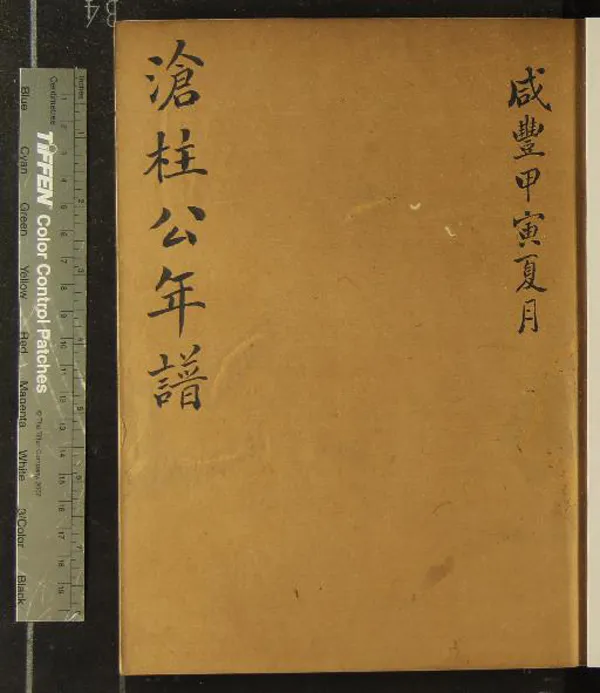 咸豐甲寅夏月
滄柱公年譜
B4
Inches
Centimetres
TIFFEN Color Control Patches
© The Tiffen Company, 2007
Blue Cyan Green Yellow Red Magenta White 3/Color Black
1 2 3 4 5 6 7
1 2 3 4 5 6 7 8 9 10 11 12 13 14 15 16 17 18 19